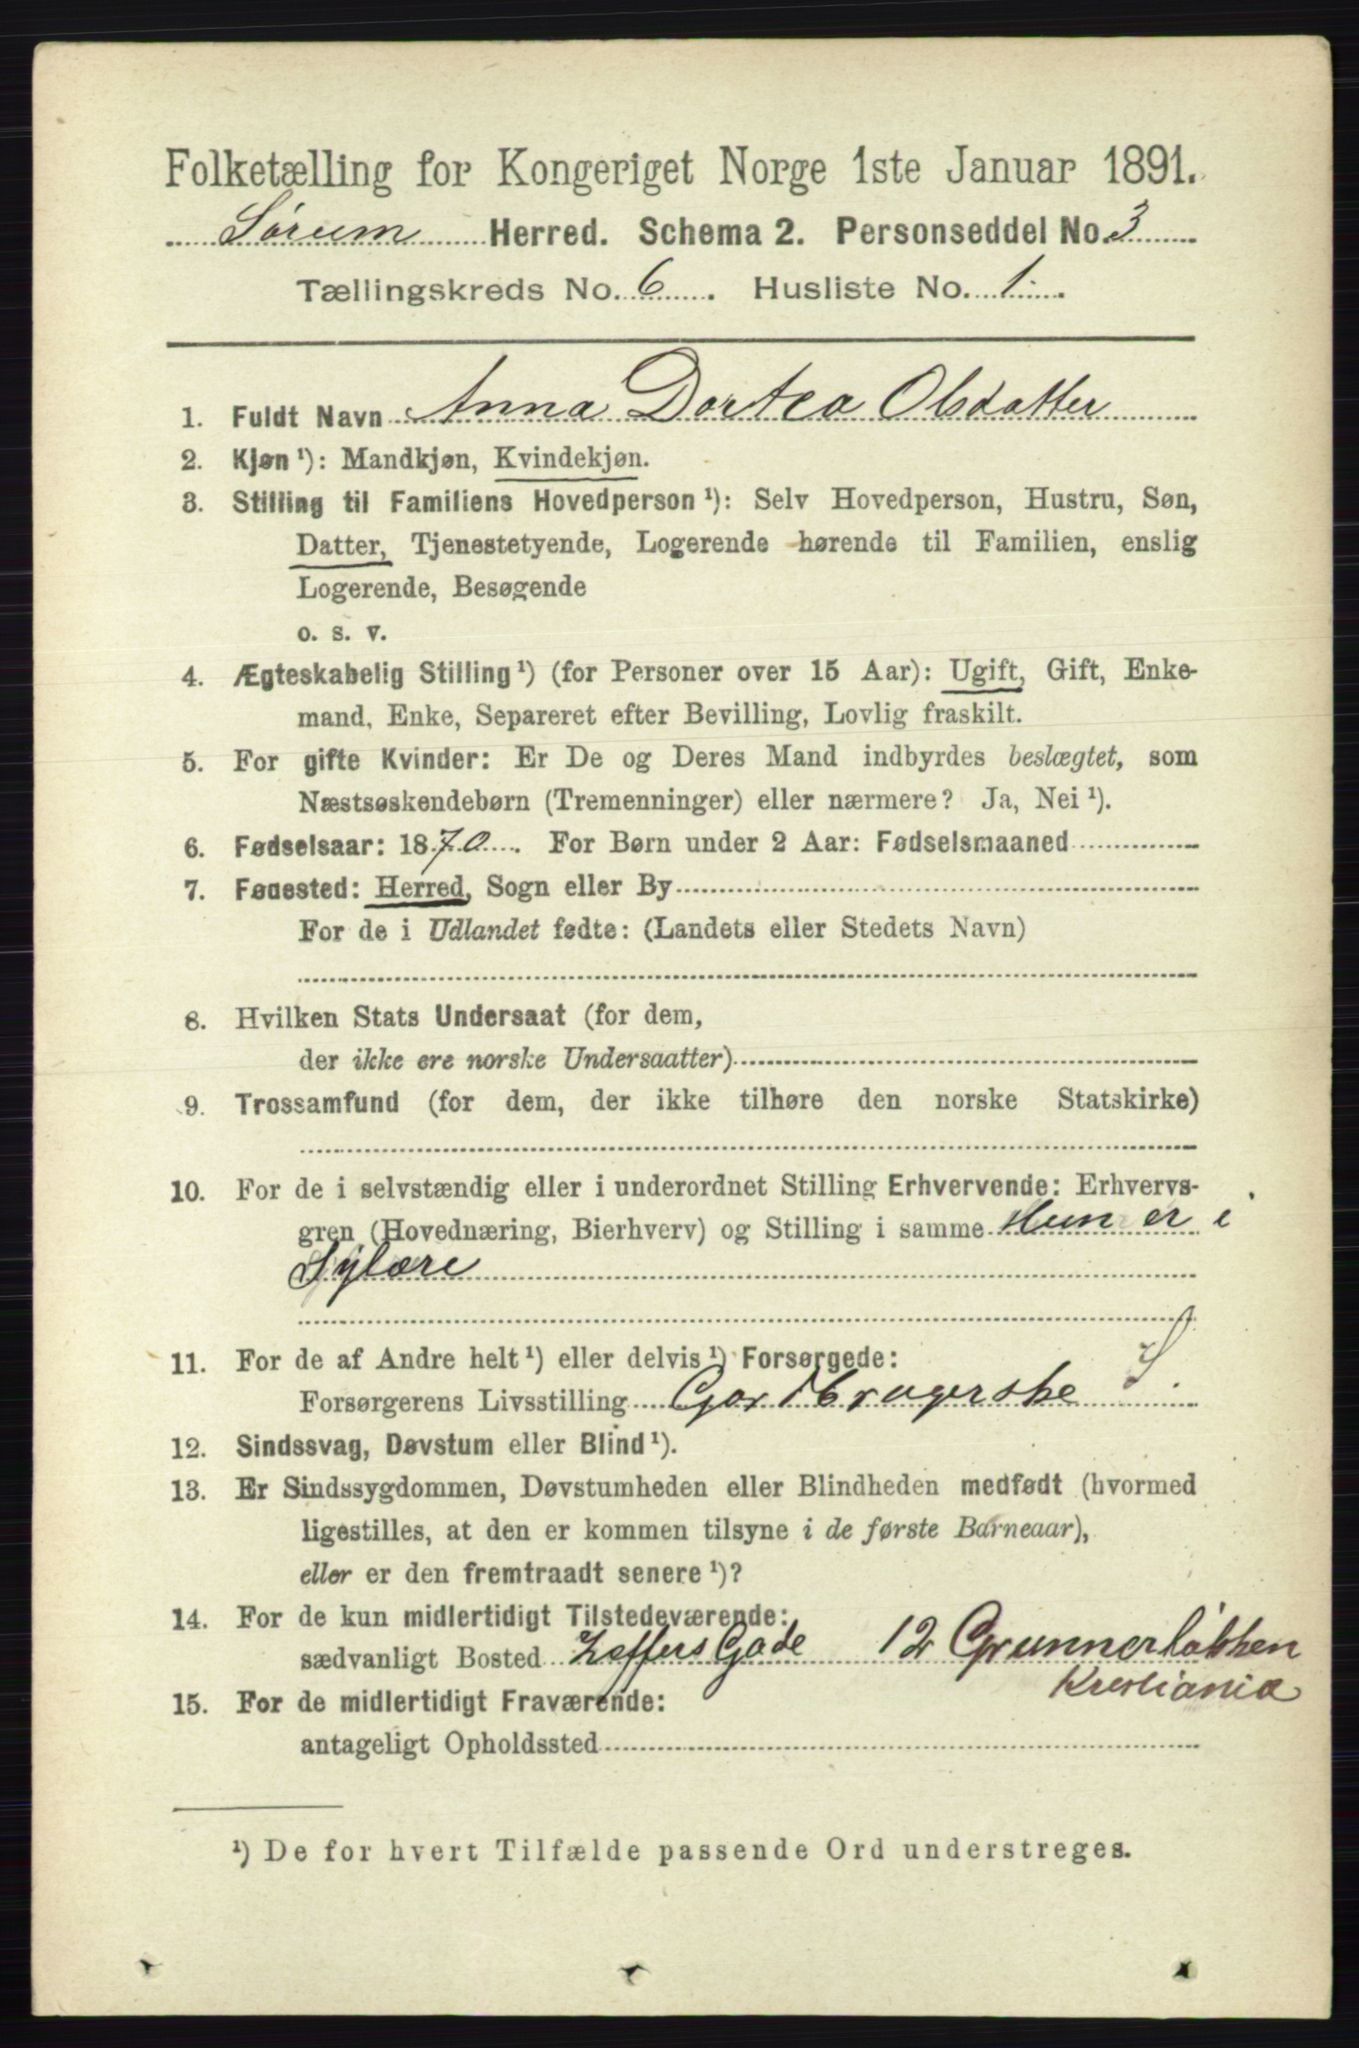 Folketælling for Kongeriget Norge 1ste Januar 1891.
Sørum Herred. Schema 2. Personseddel No. 3
Tællingskreds No. 6. Husliste No. 1.
1. Fuldt Navn Anna Dortea Olsdatter
2. Kjøn ¹): Mandkjøn, Kvindekjøn.
3. Stilling til Familiens Hovedperson ¹): Selv Hovedperson, Hustru, Søn,
Datter, Tjenestetyende, Logerende hørende til Familien, enslig
Logerende, Besøgende
o. s. v.
4. Ægteskabelig Stilling ¹) (for Personer over 15 Aar): Ugift, Gift, Enke-
mand, Enke, Separeret efter Bevilling, Lovlig fraskilt.
5. For gifte Kvinder: Er De og Deres Mand indbyrdes beslægtet, som
Næstsøskendebørn (Tremenninger) eller nærmere? Ja, Nei ¹).
6. Fødselsaar: 1870. For Børn under 2 Aar: Fødselsmaaned
7. Fødested: Herred, Sogn eller By
For de i Udlandet fødte: (Landets eller Stedets Navn)
8. Hvilken Stats Undersaat (for dem,
der ikke ere norske Undersaatter)
9. Trossamfund (for dem, der ikke tilhøre den norske Statskirke)
10. For de i selvstændig eller i underordnet Stilling Erhvervende: Erhvervs-
gren (Hovednæring, Bierhverv) og Stilling i samme Hun er i
Sylære
11. For de af Andre helt ¹) eller delvis ¹) Forsørgede:
Forsørgerens Livsstilling Gardbrugerske S.
12. Sindssvag, Døvstum eller Blind ¹).
13. Er Sindssygdommen, Døvstumheden eller Blindheden medfødt (hvormed
ligestilles, at den er kommen tilsyne i de første Barneaar),
eller er den fremtraadt senere ¹)?
14. For de kun midlertidigt Tilstedeværende:
sædvanligt Bosted Gade 12 Grunnerløkken
Kristiania
15. For de midlertidigt Fraværende:
antageligt Opholdssted
¹) De for hvert Tilfælde passende Ord understreges.